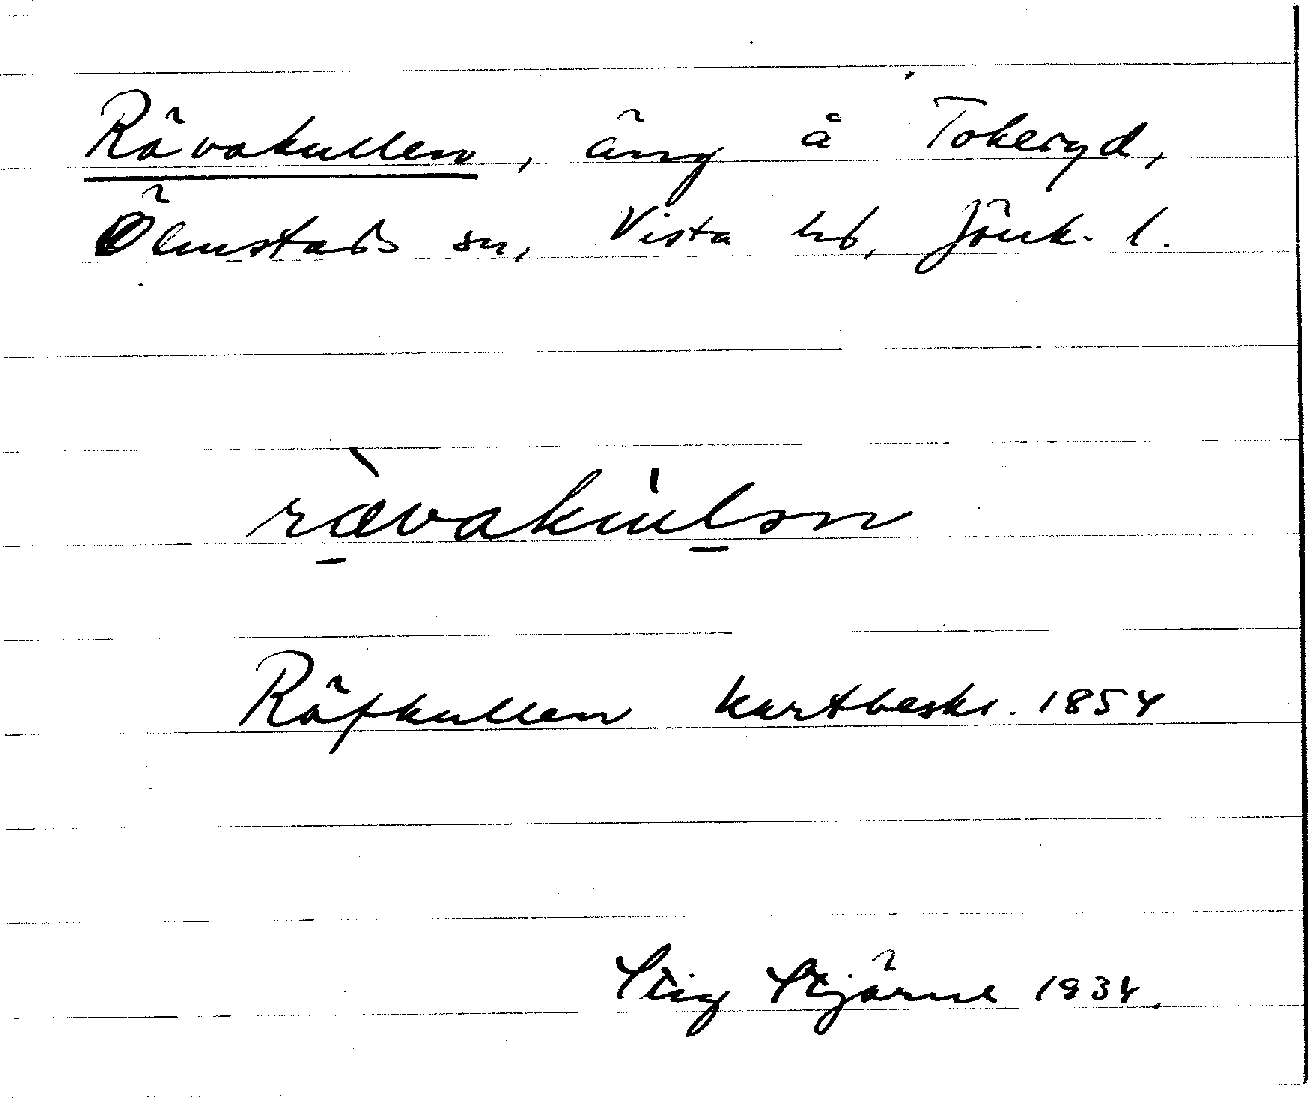 Rävakullen, äng å Tokeryd,
Ölmstads sn, Vista hd, Jönk. l.
rævakulən
Räfkullen kartbeskr. 1854
Stig Stjärne 1934.